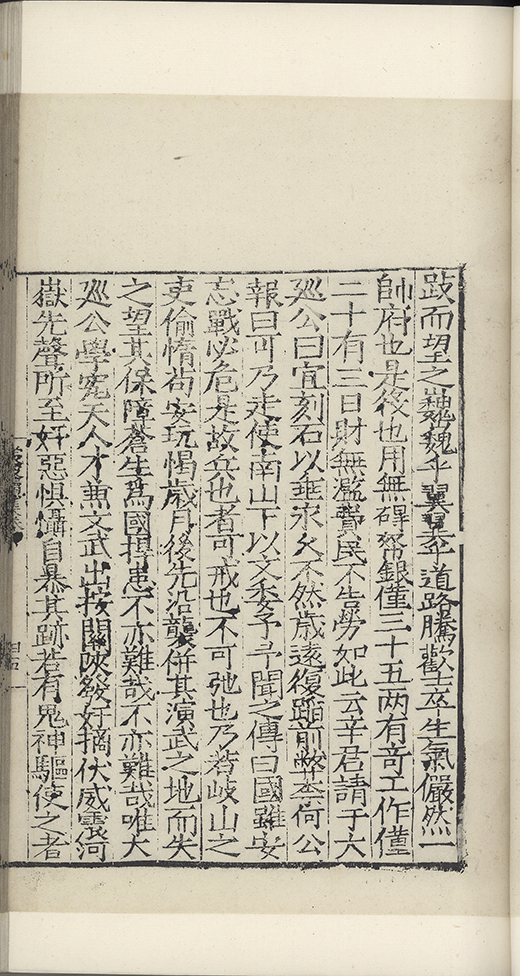 跂而望之巍巍乎翼翼乎道路騰歡士卒生氣儼然一
帥府也是役也用無碍帑銀僅三十五两有竒工作僅
二十有三日財無濫費民不告勞如此云辛君請于大
廵公曰宜刻石以垂永久不然歳遠復蹈前弊柰何公
報曰可乃走使南山下以文委予予聞之傳曰國雖安
忘戰必危是故兵也者可戒也不可弛也乃若岐山之
吏偷惰苟安玩愒歳月後先沿襲併其演武之地而失
之望其保障蒼生爲國捍患不亦難哉不亦難哉唯大
廵公學究天人才兼文武出按關陝發奸摘伏威震河
嶽先聲所至奸惡惧懾自暴其跡若有鬼神驅使之者